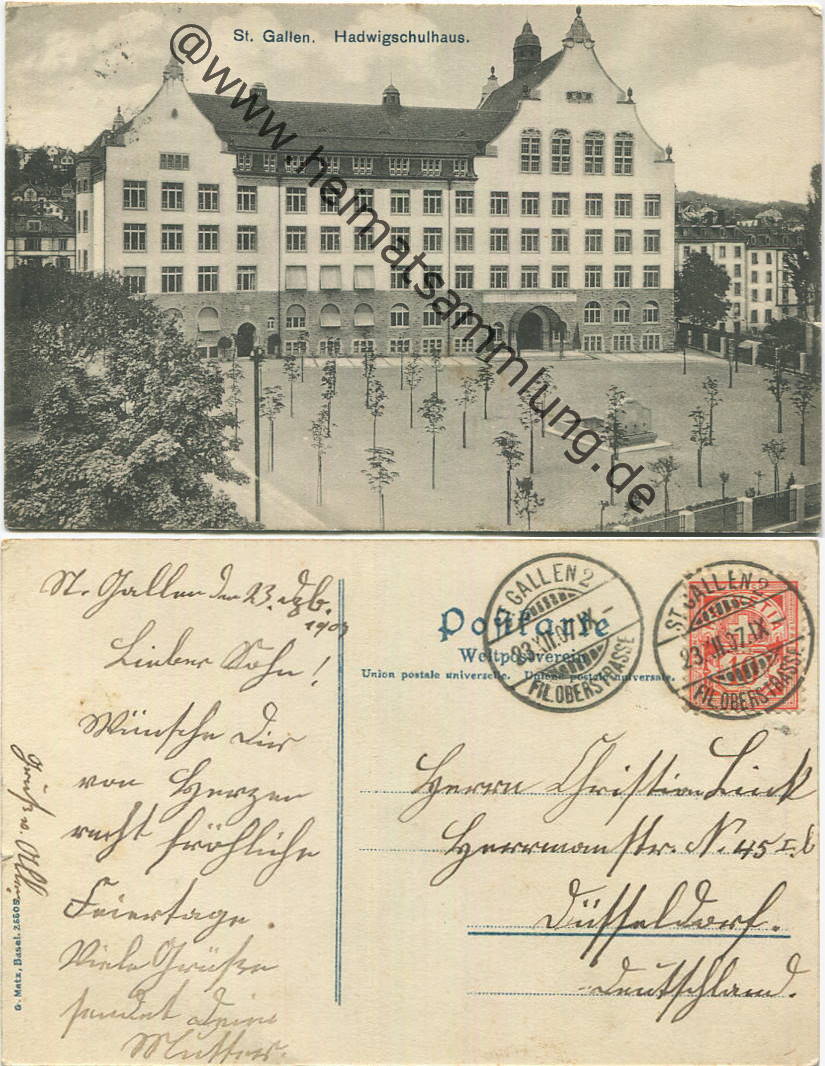 St. Gallen. Hadwigschulhaus.
@www.heimatsammlung.de
St. Gallen den 23. Dzb.
1907
Lieber Sohn!
Wünsche Dir
von Herzen
recht fröhliche
Feiertage.
Viele Grüße
sendet Deine
Mutter.
Grüße v. Allen
G. Metz, Basel.
Postkarte
Weltpostverein
Union postale universelle. Unione postale universale.
ST. GALLEN 2
23.XII.07.IX-
FIL. OBERSTRASSE
ST. GALLEN 2
23.XII.07.IX
FIL. OBERSTRASSE
HELVETIA
10
Herrn Christian Link
Herrmanstr. N. 45 I.
Düsseldorf.
Deutschland.